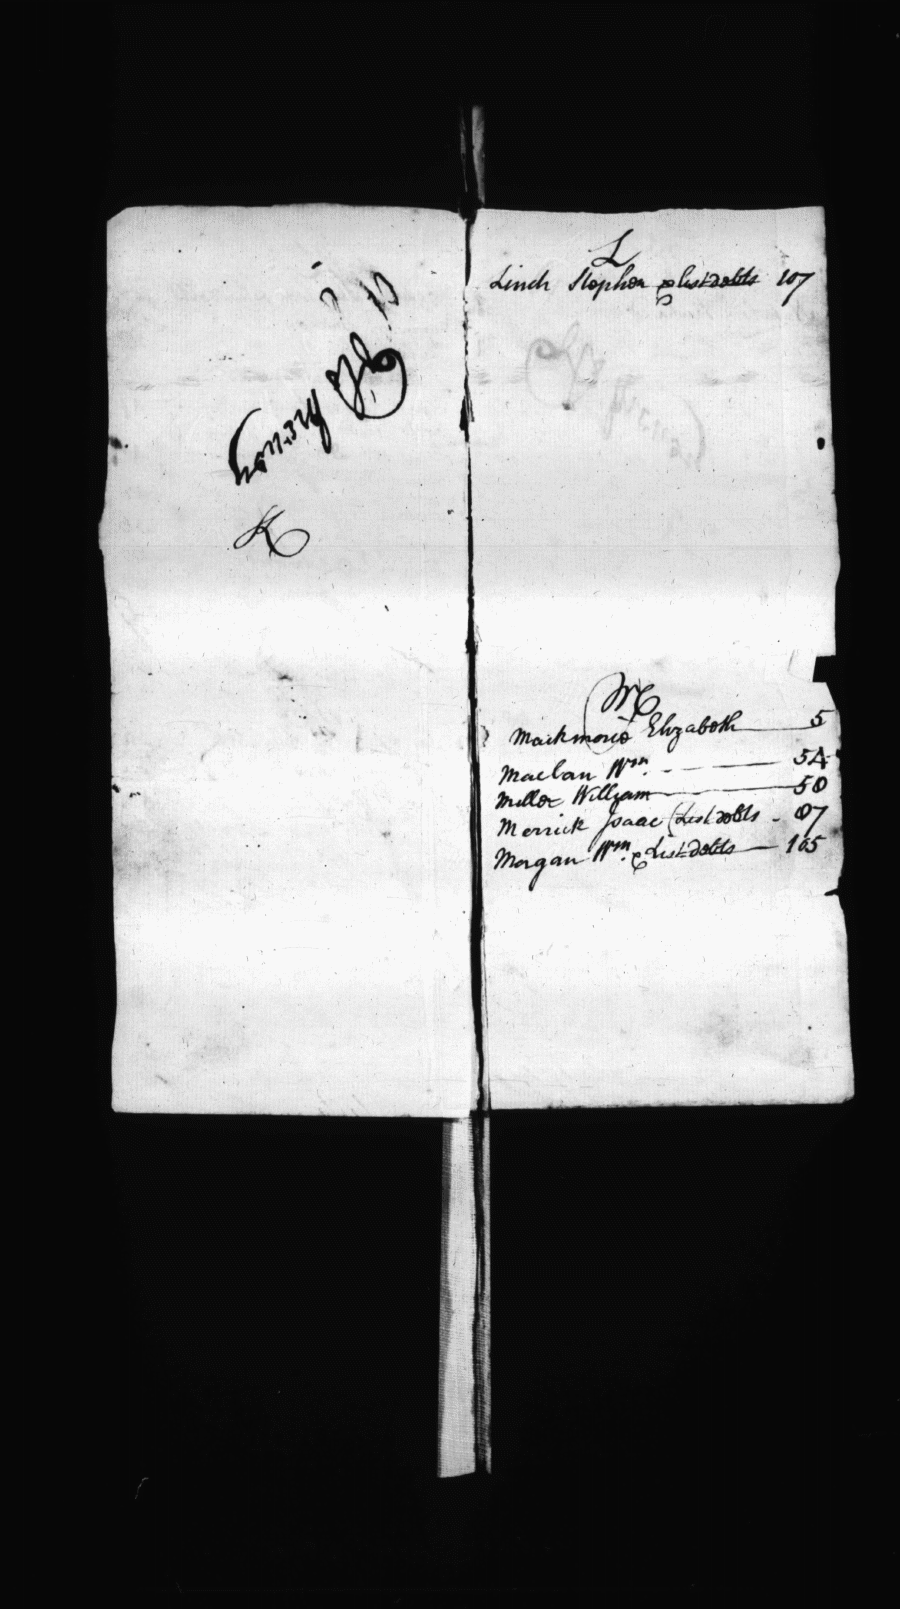 K
L
Linch Stephen & list debts 107
M
Mackmorie Elizabeth 5
Maclan Wm. 54
Miller William 58
Merrick Isaac (List debts 87
Morgan Wm. & List debts 105